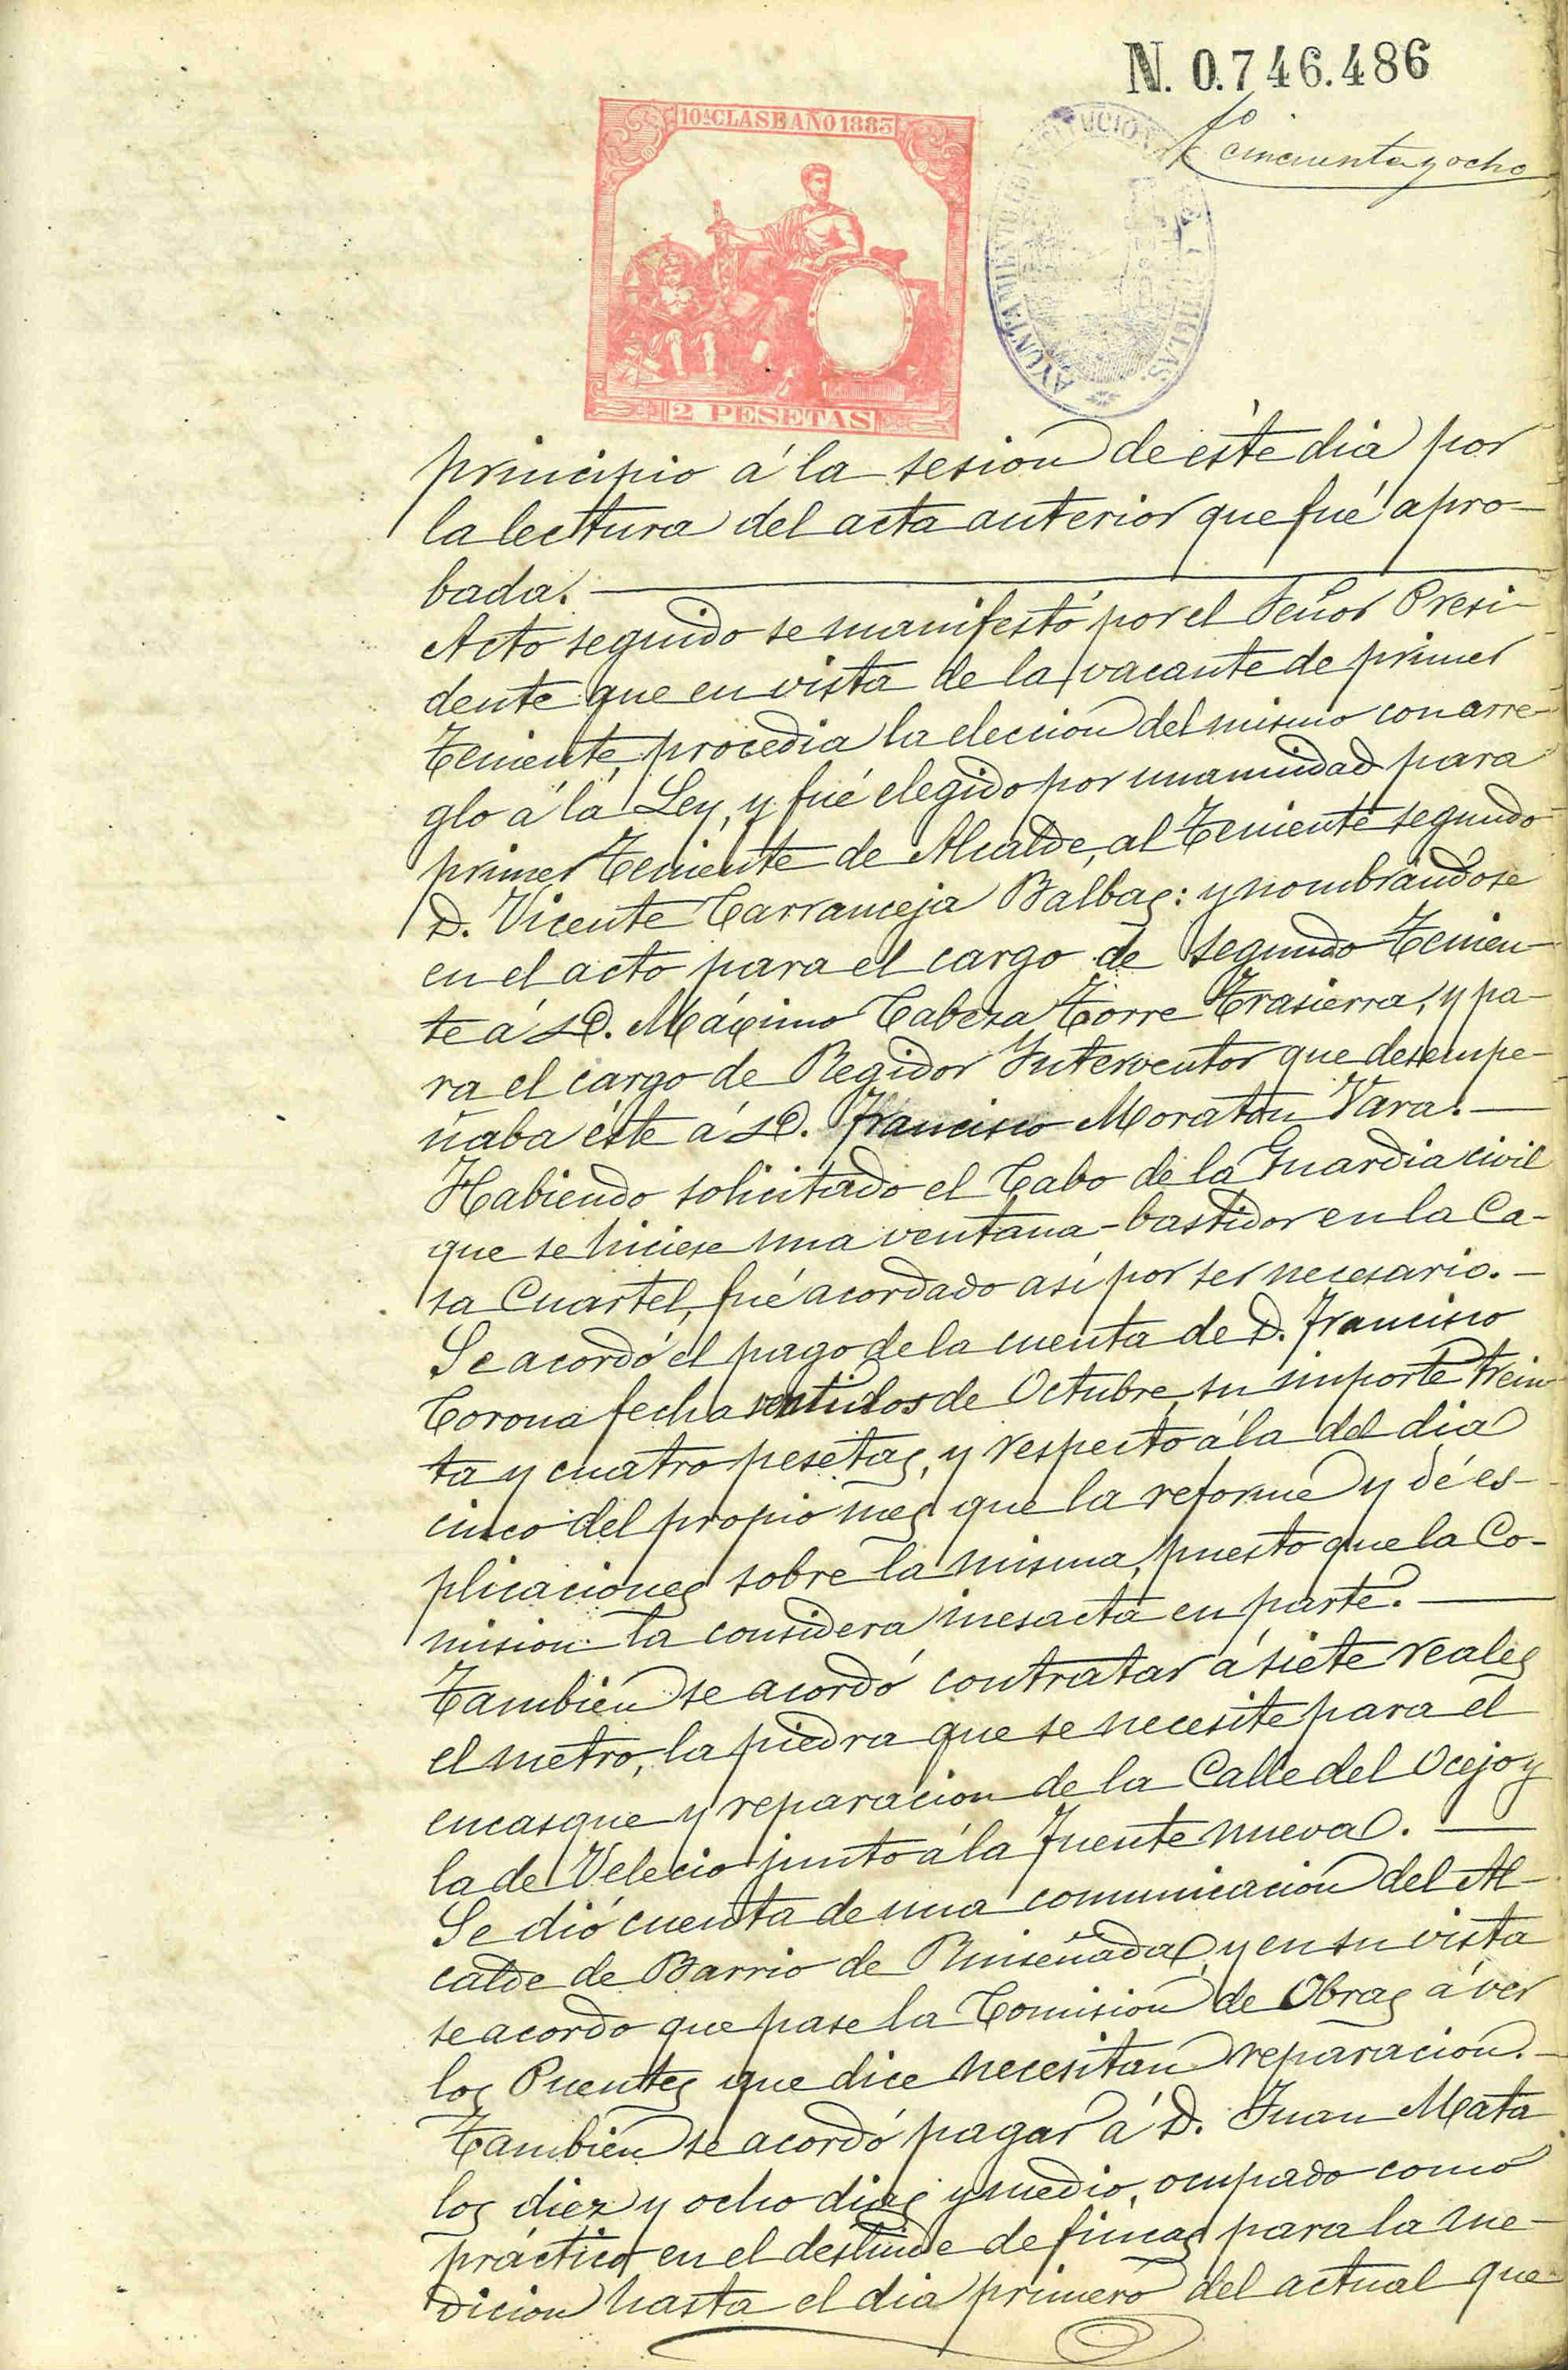 N. 0.746.486
10ª CLASE AÑO 1883
fº cincuenta y ocho
AYUNTAMIENTO
2 PESETAS
principio á la sesion de éste dia por
la lectura del acta anterior que fué apro-
bada.
Acto seguido se manifestó por el Señor Presi-
dente que en vista de la vacante de primer
Teniente, procedia la eleccion del mismo con arre-
glo á la Ley, y fué elegido por unanimidad para
primer Teniente de Alcalde, al Teniente segundo
D. Vicente Carranceja Balbas: y nombrándose
en el acto para el cargo de segundo Tenien-
te á D. Máximo Cabeza Torre Trasierra, y pa-
ra el cargo de Regidor Interventor que desempe-
ñaba éste á D. Francisco Moraton Vara.
Habiendo solicitado el Cabo de la Guardia civil
que se hiciese una ventana-bastidor en la Ca-
sa Cuartel, fué acordado así por ser necesario.
Se acordó el pago de la cuenta de D. Francisco
Corona fecha ventidos de Octubre, su importe trein
ta y cuatro pesetas, y respecto á la del dia
cinco del propio mes que la reforme y dé es-
plicaciones sobre la misma, puesto que la Co-
mision la considera inesacta en parte.
Tambien se acordó contratar á siete reales
el metro, la piedra que se necesite para el
encasque y reparacion de la Calle del Ocejo y
la de Velecio junto á la Fuente nueva.
Se dió cuenta de una comunicacion del Al-
calde de Barrio de Ruiseñada, y en su vista
se acordo que pase la Comision de Obras á ver
los Puentes que dice necesitan reparacion.
Tambien se acordó pagar á D. Juan Mata
los diez y ocho dias y medio, ocupado como
práctico en el deslinde de fincas para la me-
dicion hasta el dia primero del actual que